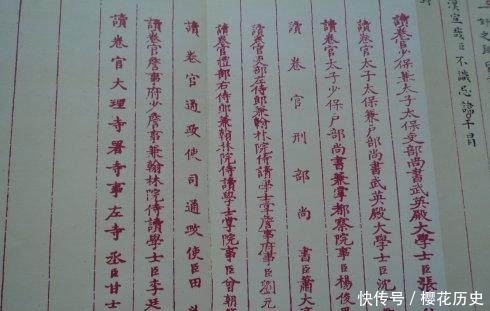 漢宣哉臣不識忌諱干冒
讀卷官少保兼太子太保吏部尚書武英殿大學士臣張
讀卷官太子太保兼戶部尚書武英殿大學士臣沈
讀卷官太子少保戶部尚書兼掌都察院事臣楊俊
讀卷官刑部尚書臣蕭大
讀卷官吏部左侍郎兼翰林院侍讀學士掌詹事府事臣劉元
讀卷官禮部右侍郎兼翰林院侍讀學士掌院事臣曾朝
讀卷官通政使司通政使臣田
讀卷官詹事府少詹事兼翰林院侍讀學士臣李廷
讀卷官大理寺署寺事左寺丞臣甘士
快传号/樱花历史